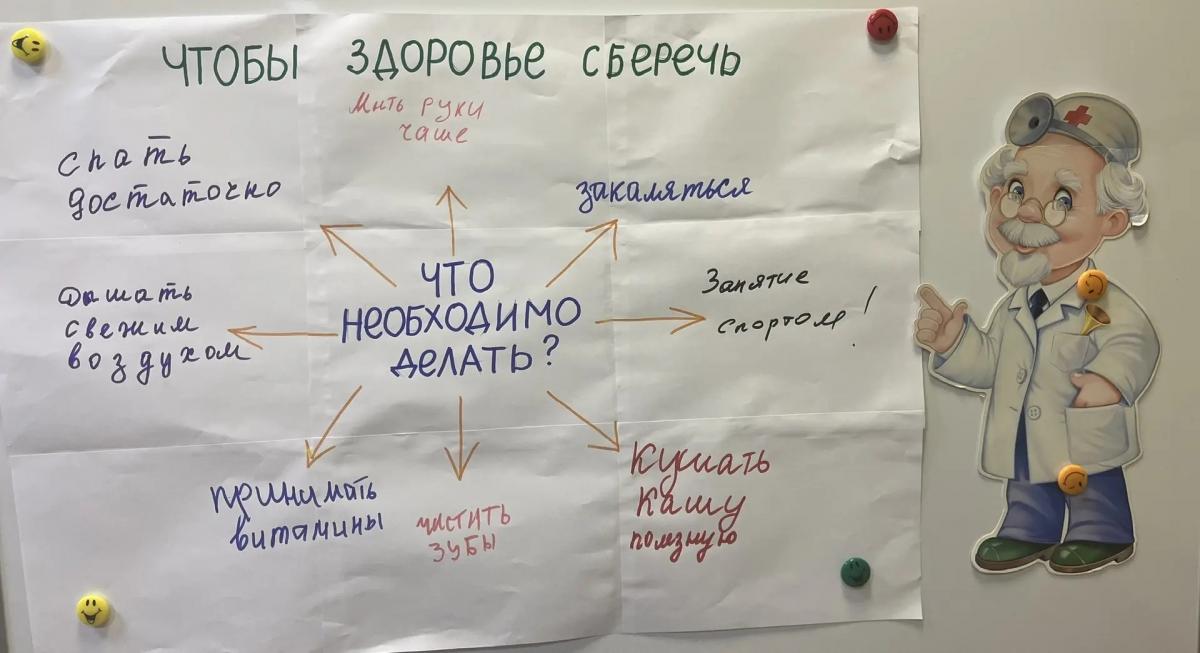 ЧТОБЫ ЗДОРОВЬЕ СБЕРЕЧЬ
Мыть руки
чаще
спать
достаточно
закаляться
ЧТО
НЕОБХОДИМО
ДЕЛАТЬ?
Дышать
свежим
воздухом
Занятие
спортом!
принимать
витамины
чистить
зубы
Кушать
кашу
полезную